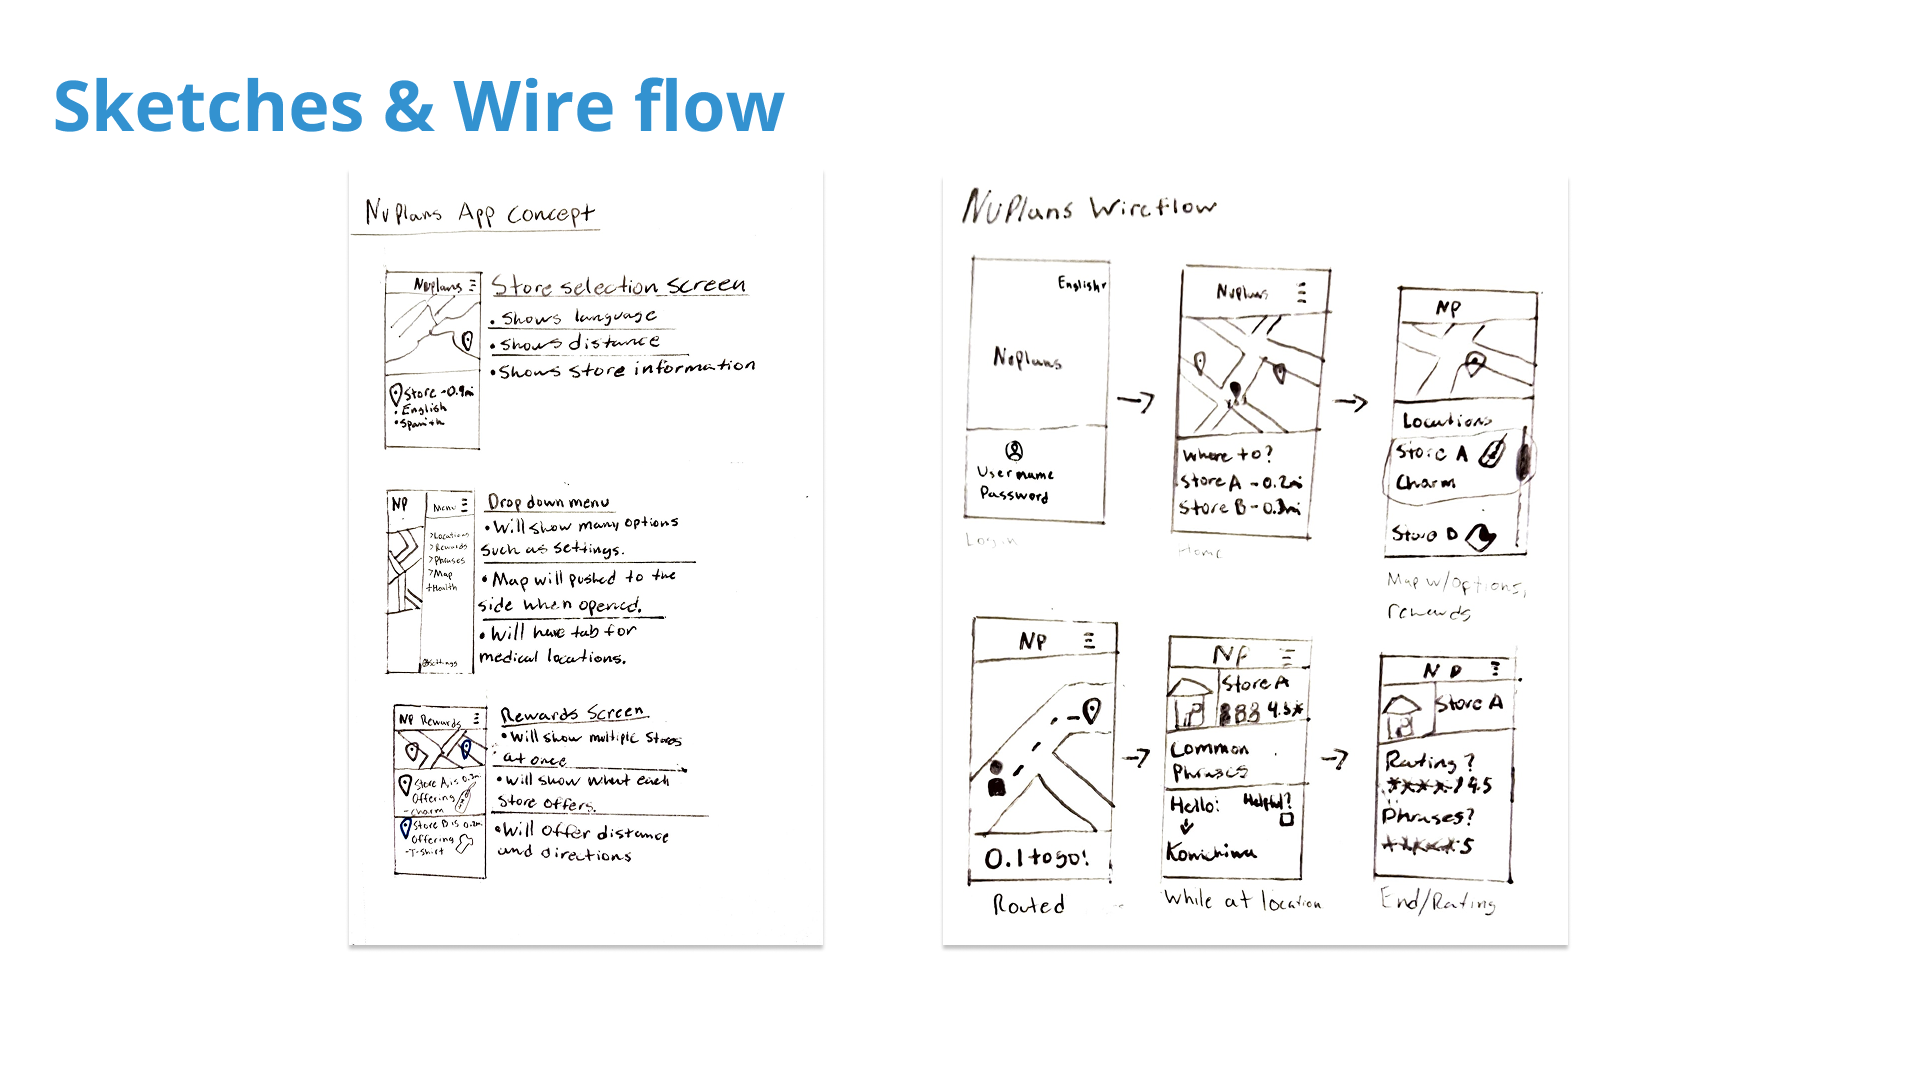 Sketches & Wire flow
NuPlans App Concept
Nuplans
Store - 0.9mi
• English
• Spanish
Store selection screen
• Shows language
• Shows distance
• Shows store information
NP
Menu
>Locations
>Rewards
>Phrases
>Map
+Health
Settings
Drop down menu
• Will show many options
such as settings.
• Map will pushed to the
side when opened.
• Will have tab for
medical locations.
NP Rewards
Store A is 0.2m
Offering
- Charm
Store B is 0.2m
Offering
- T-Shirt
Rewards Screen
• Will show multiple Stores
at once
• Will show what each
Store offers.
• Will offer distance
and directions
NuPlans Wireflow
English
NuPlans
Username
Password
Login
NuPlans
Where to?
Store A - 0.2mi
Store B - 0.3mi
Home
NP
Locations
Store A
Charm
Store D
Map w/options,
rewards
NP
0.1 to go!
Routed
NP
Store A
4.5★
Common
Phrases
Hello:
Helpful?
Konichiwa
While at location
NP
Store A
Rating?
★★★★/4.5
Phrases?
★★★★★5
End/Rating